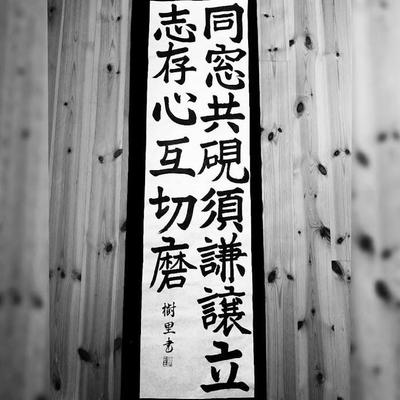 同窓共硯須謙譲立
志存心互切磨
樹里書